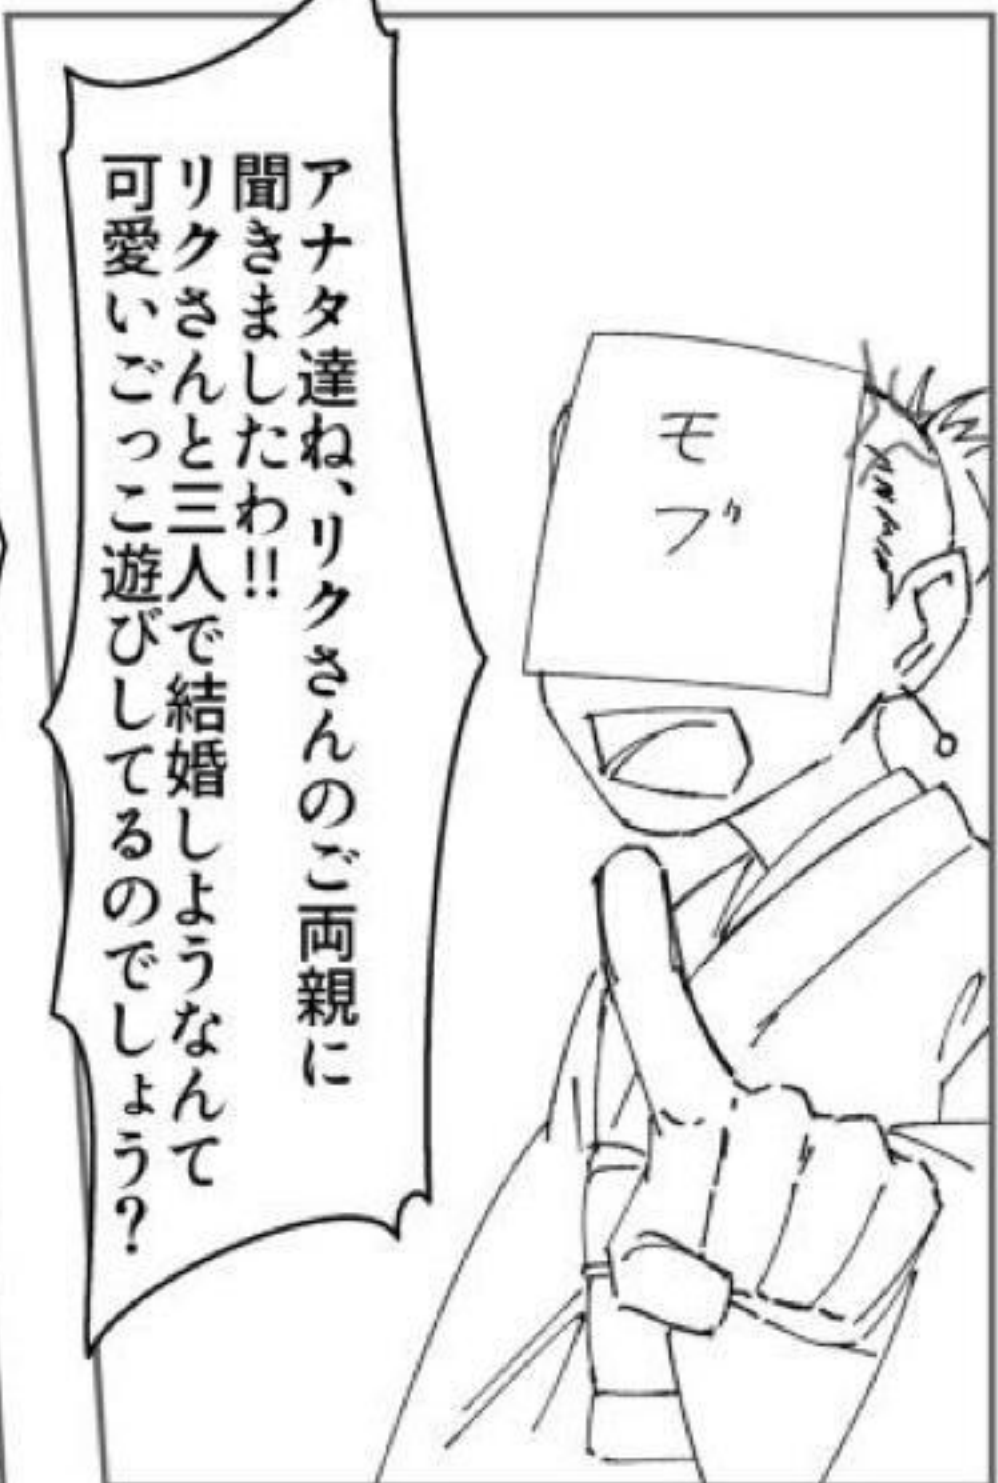 アナタ達ね、リクさんのご両親に
聞きましたわ!!
リクさんと三人で結婚しようなんて
可愛いごっこ遊びしてるのでしょう?
モブ